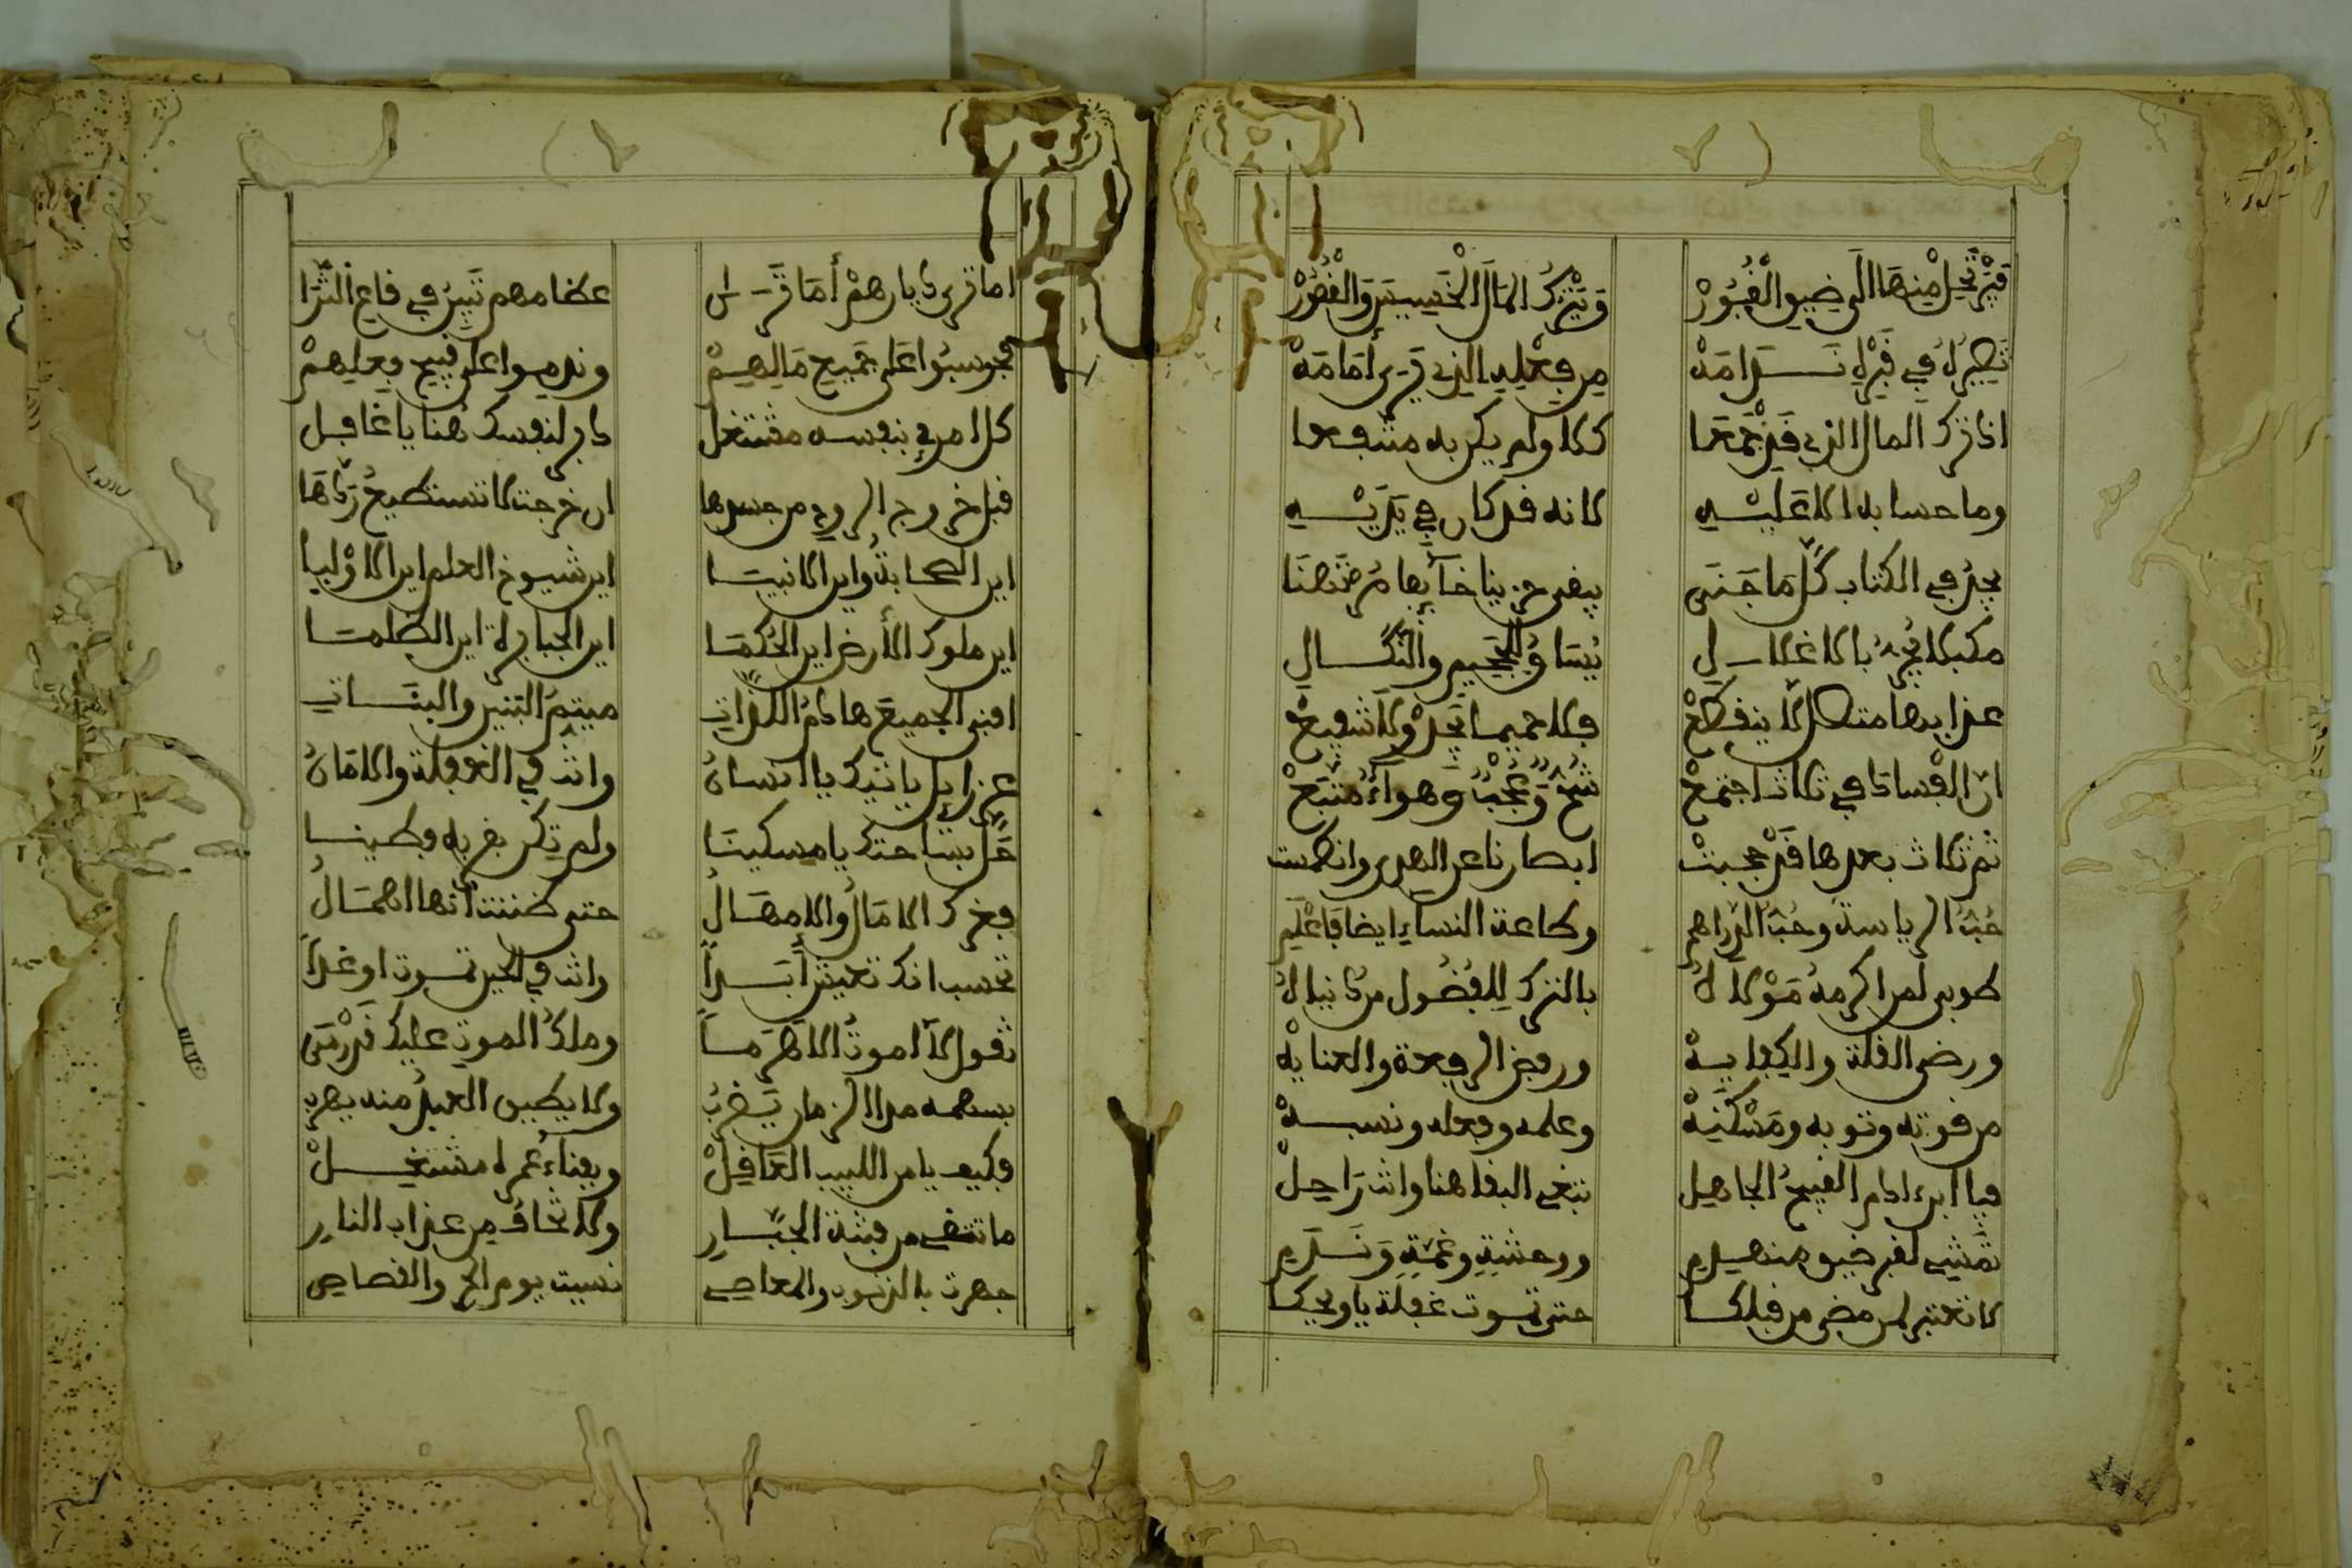 فترتحل منها الى ضيق القبور وتترك المال الخسيس والقصور
تصير له في قبره ندامه من فعله الذي يرى أمامه
اذا ترك المال الذي قد جمعا كلا ولم يكن به منتفعا
وما حسابه الا عليه كانه قد كان في يديه
يجد في الكتاب كل ما جنى يبقى حزينا خآئبا مرتهنا
مكبلا يجر بالاغلال يساق للجحيم والنكال
عذابها متصل لا ينقطع فلا حميما يجد ولا شفيع
ان الفساد في ثلاث اجتمع شح وعجب وهواء متبع
ثم ثلاث بعدها قد حجبت ابصارنا عن الهدى وانطمست
حب الرياسة وحب الدراهم وطاعة النساء ايضا فاعلم
طوبى لمن اكرمه مولاه بالترك للفضول من دنياه
ورضى القلة والكفايه ورفض الرفعة والعنايه
من قوته وثوبه ومسكنه وعلمه وفعله ونسبه
فيا ابن ءادم القبيح الجاهل تبغي البقا هنا وانت راحل
تمشي لقبر ضيق منهدم ووحشة وغمة وندم
لا تعتبر لمن مضى من قبلكا حتى تموت غفلة يا ويحكا
اما ترى ديارهم أما ترى عظامهم تبين في قاع الثرا
حوسبوا على جميع مالهم وندموا على قبيح فعلهم
كل امرئ بنفسه مشتغل دابر لنفسك هنا يا غافل
قبل خروج الروح من جسدها ان خرجت لا تستطيع ردها
اين الصحابة واين الانبيا اين شيوخ العلم اين الاوليا
اين ملوك الأرض اين الحكما اين الجبابرة اين الظلما
افنى الجميع هادم اللذات ميتم البنين والبنات
عزرايل ياتيك يا انسان وانت في الغفلة والامان
حل بساحتك يا مسكينا ولم تكن بقربه فطينا
فغرك الامال والامهال حتى ظننت انها اهمال
تحسب انك تعيش أبدا وانت في الحين تموت او غدا
تقول لا اموت الا هرما وملك الموت عليك قد رمى
بسهمه مدا الزمان يضرب ولا يطيق العبد منه يهرب
فكيف يا من اللبيب العاقل وبفناء عمره مشتغل
ما تتقي من قبضة الجبار ولا تخاف من عذاب النار
جهرت بالذنوب والمعاصي نسيت يوم الحر والقصاص